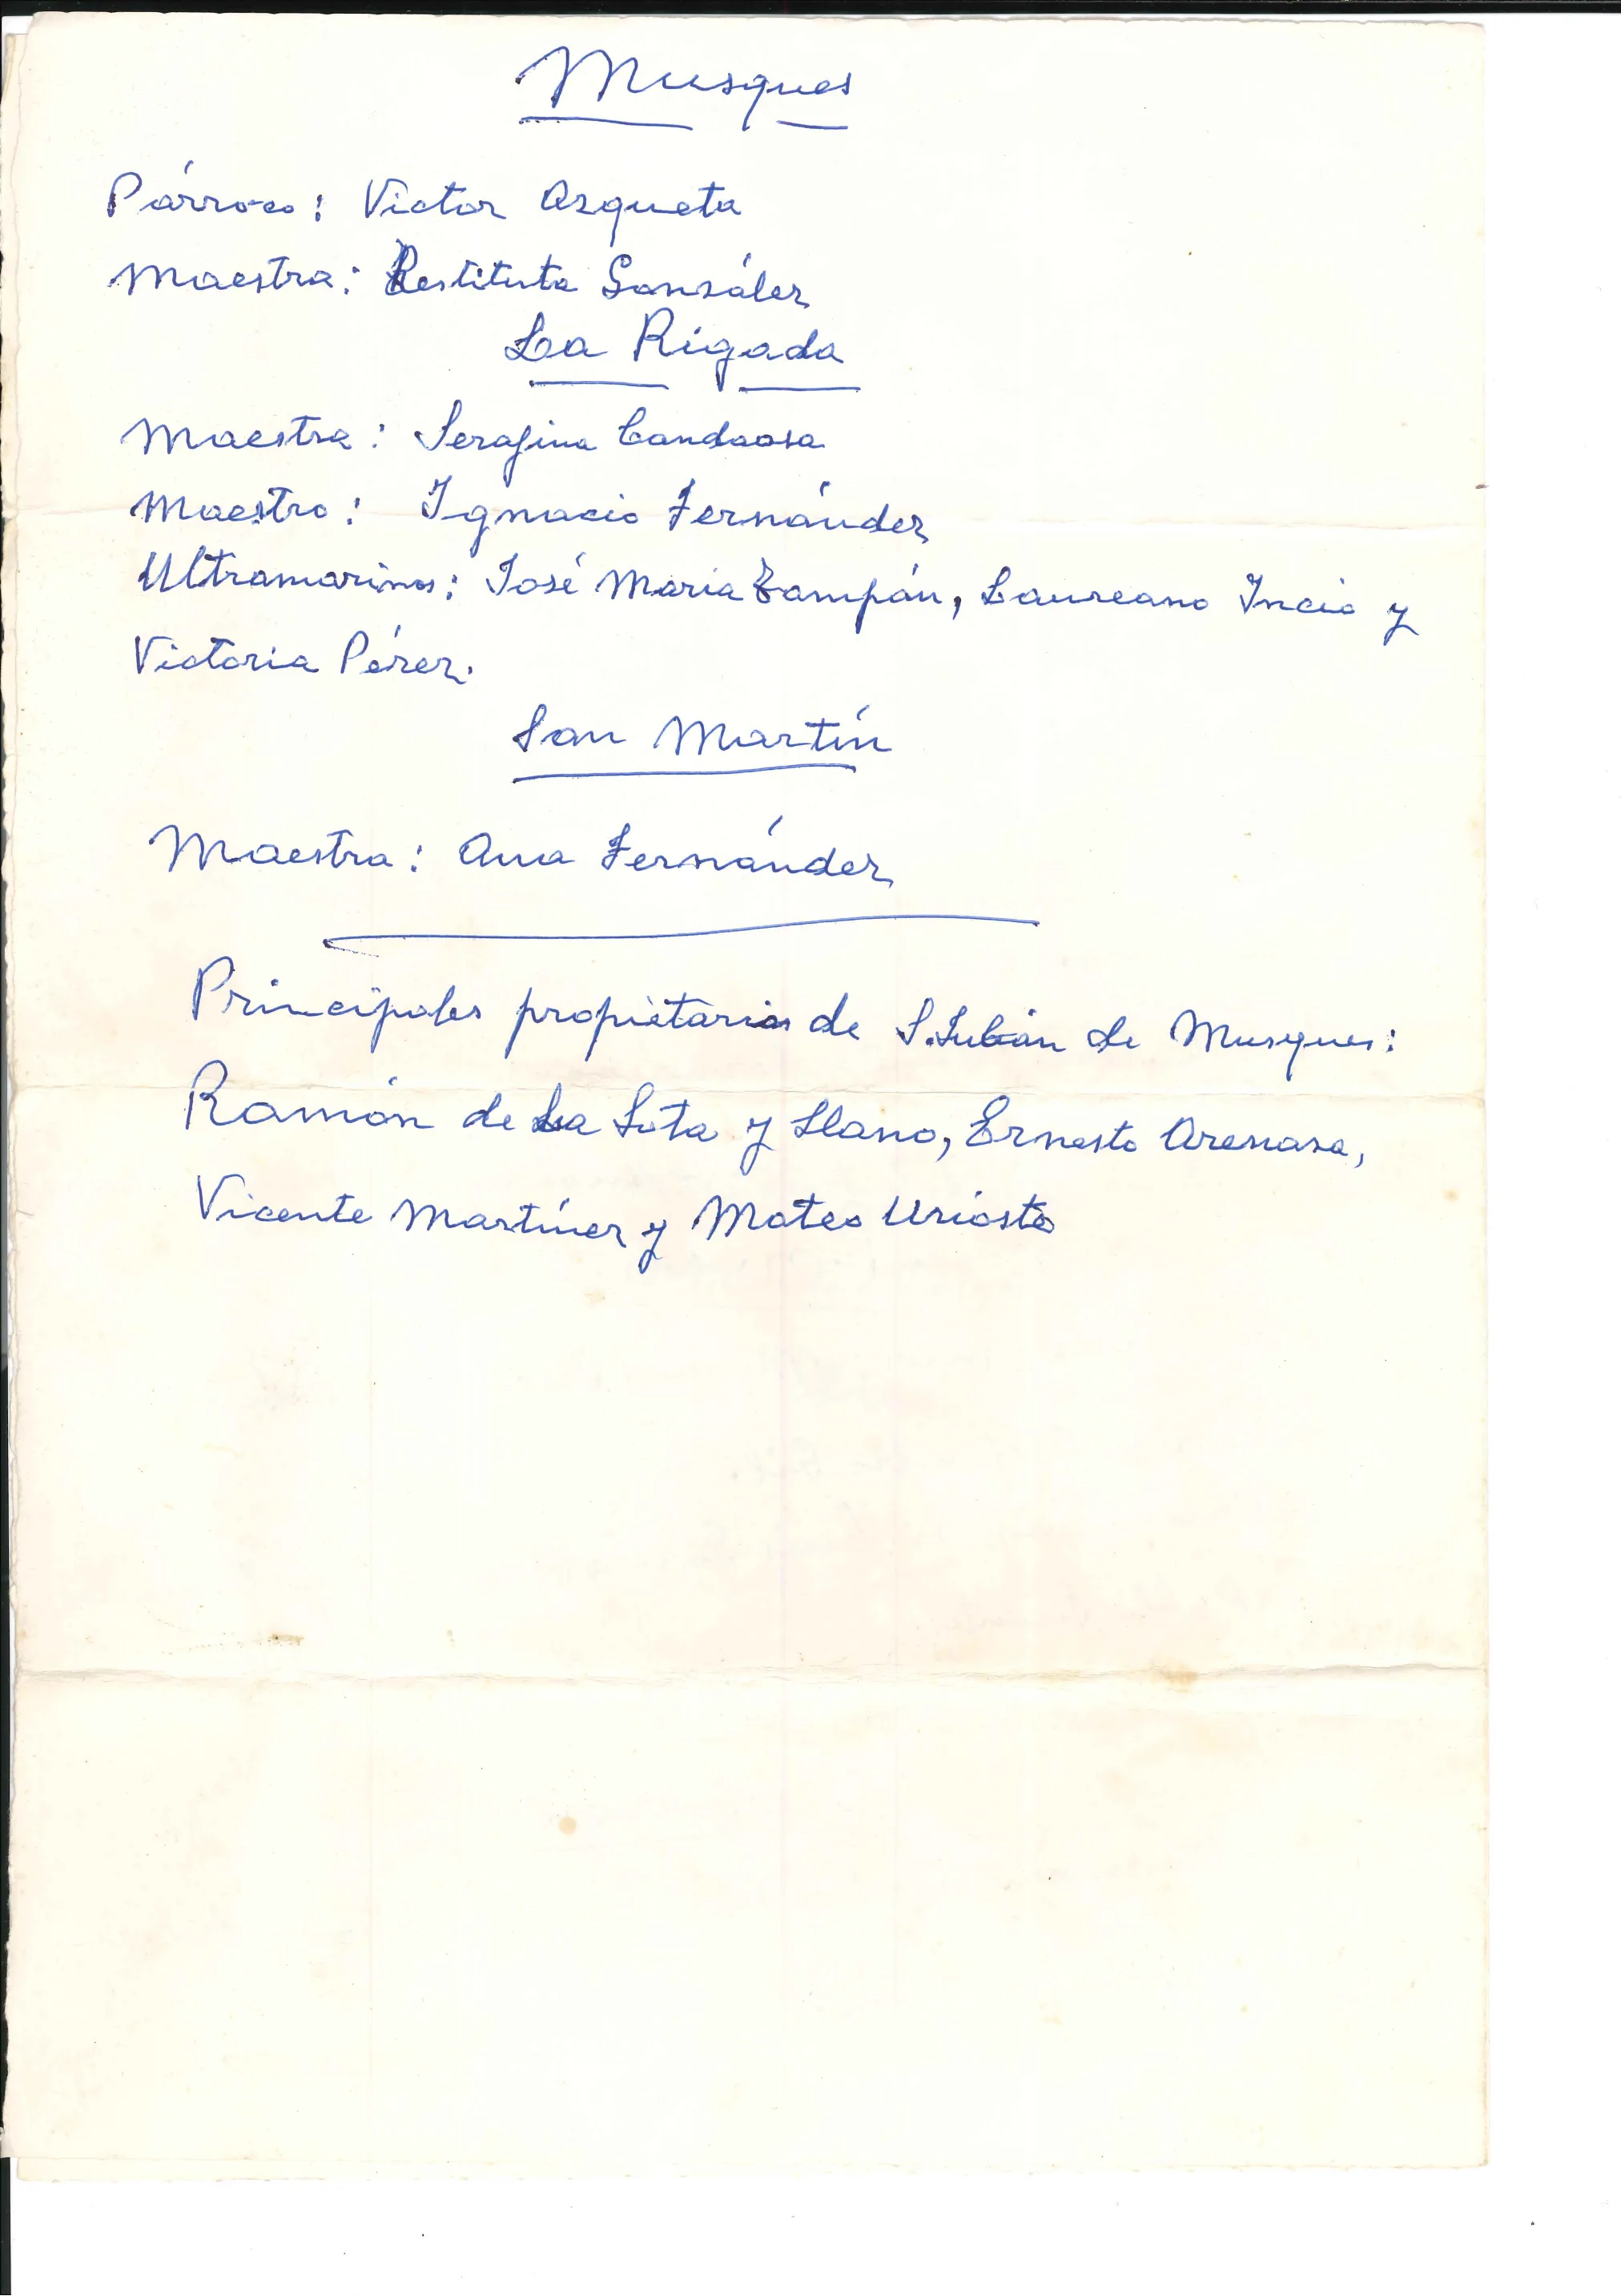 Musques
Párroco: Victor Azqueta
Maestra: Restituta González
La Rigada
Maestra: Serafina
Maestro: Ignacio Fernández
Ultramarinos: José Maria Zampán, Laureano Incio y
Victoria Pérez.
San Martín
Maestra: Ana Fernández
Principales propietarios de S. Julián de Musques:
Ramón de La Sota y Llano, Ernesto Arenaza,
Vicente Martínez y Mateo Urioste